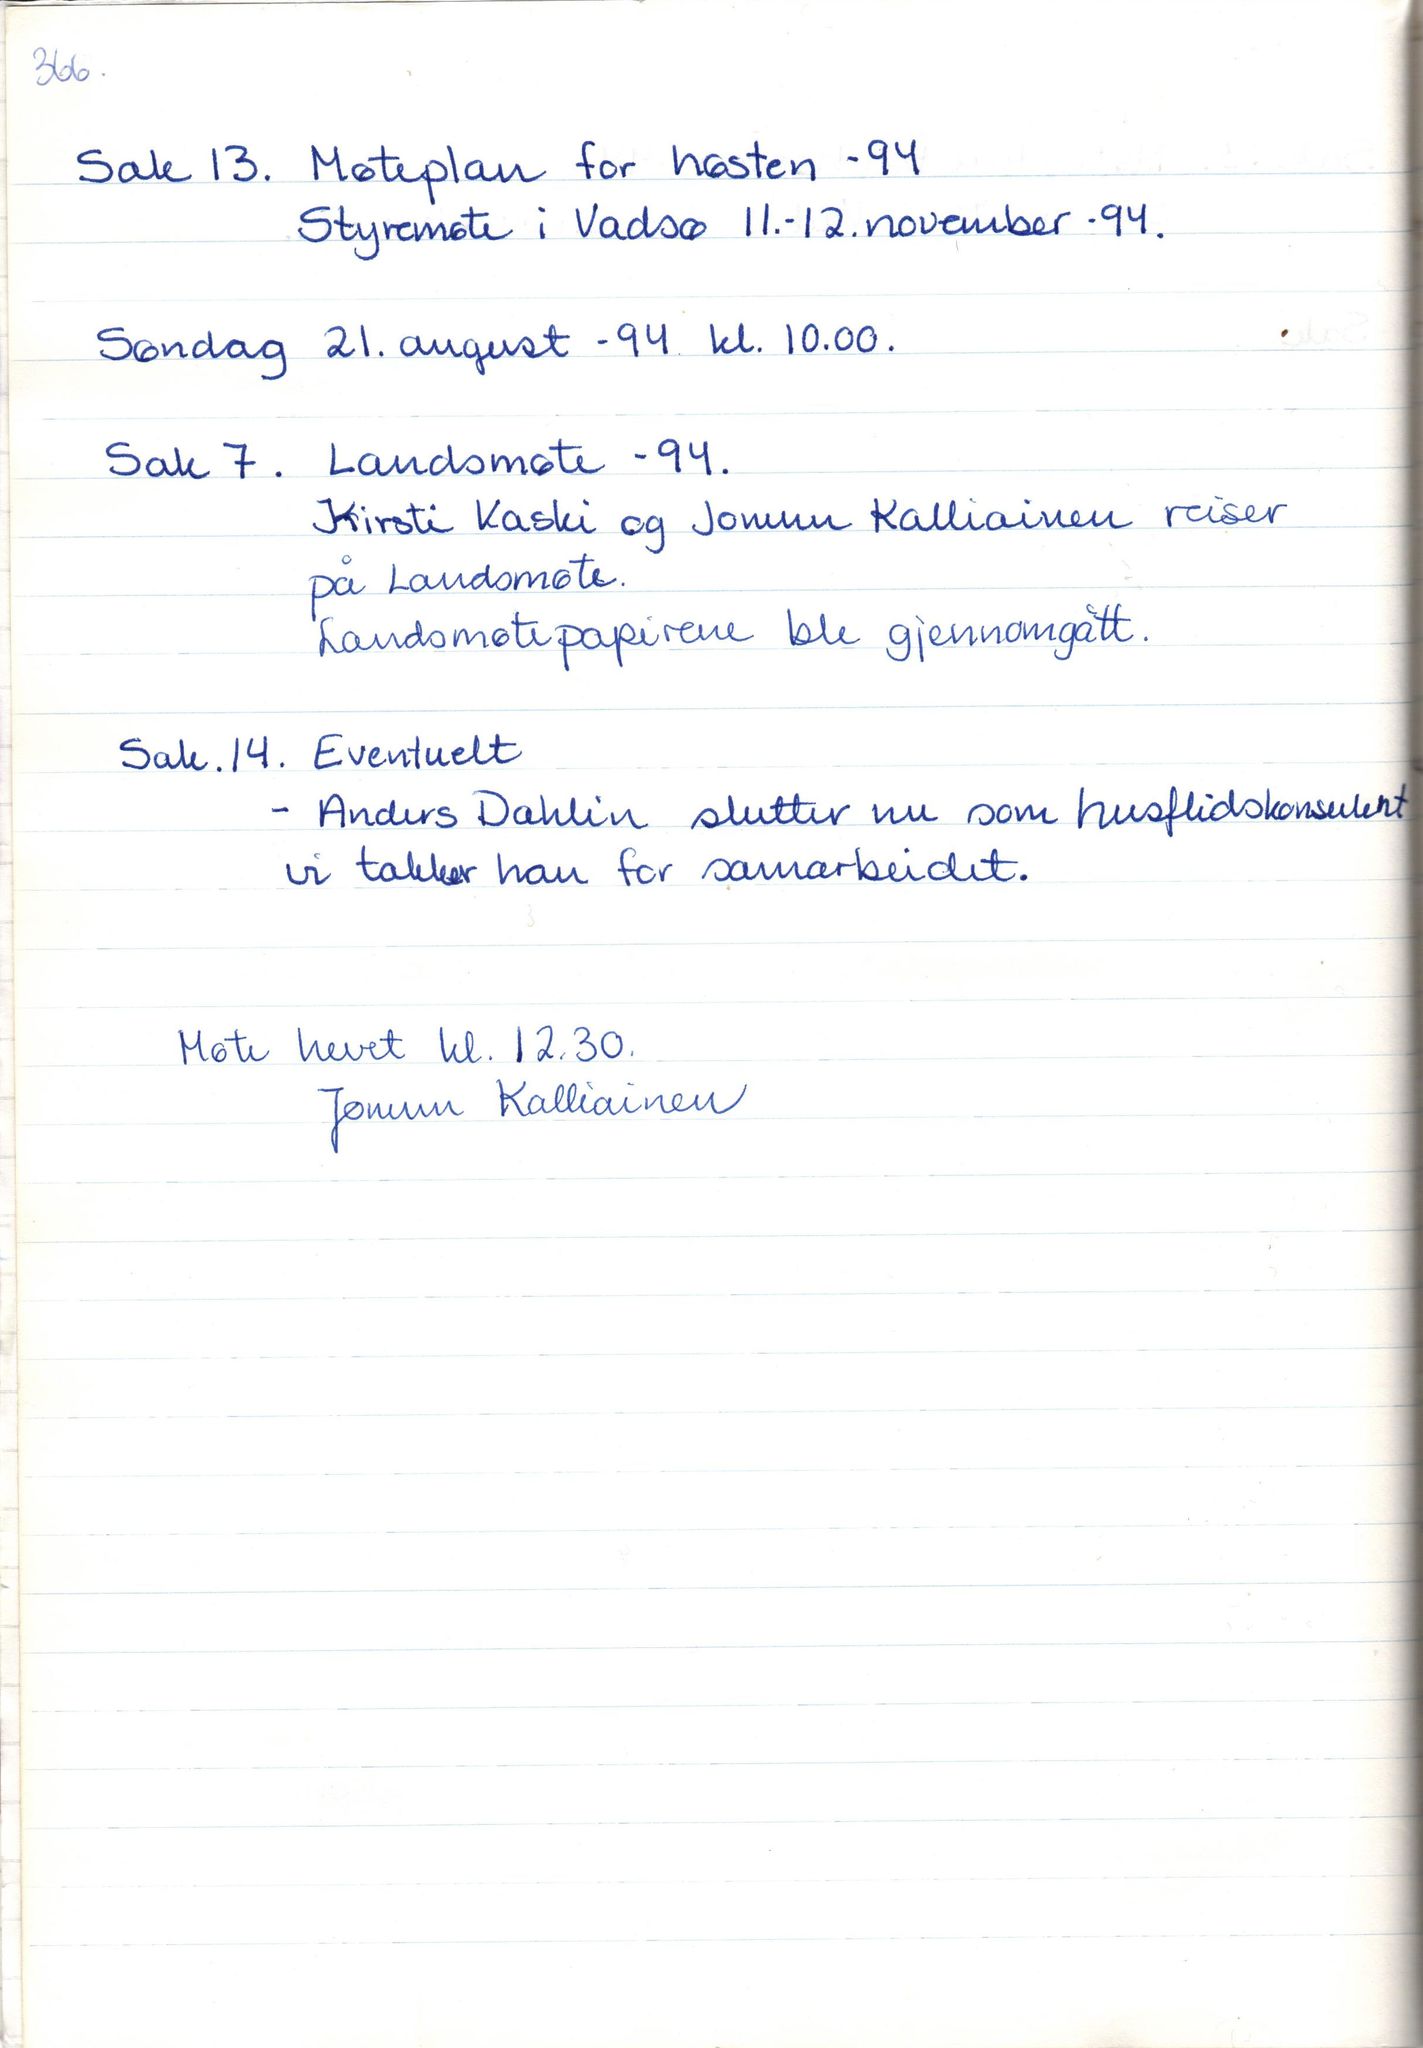 366.
Sak 13. Møteplan for høsten -94
Styremøte i Vadsø 11.-12. november -94.
Søndag 21. august -94 kl. 10.00.
Sak 7. Landsmøte -94.
Kirsti Kaski og Jorunn Kalliainen reiser
på Landsmøte.
Landsmøtepapirene ble gjennomgått.
Sak. 14. Eventuelt
- Anders Dahlin slutter nu som husflidskonsulent
vi takker han for samarbeidet.
Møte hevet kl. 12.30.
Jorunn Kalliainen